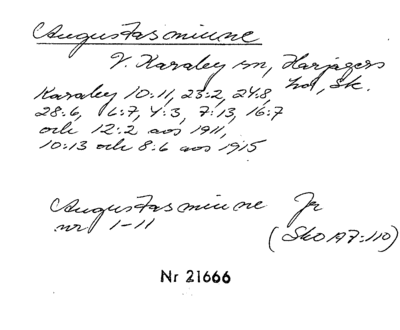 Augustasminne
V. Karaby sn, Harjagers
hd, Sk.
Karaby 10:11, 23:2, 24:8,
28:6, 6:7, 4:3, 7:13, 16:7
och 12:2 aos 1911,
10:13 och 8:6 aos 1915
Augustasminne Jr
nr 1-11
(Sko A7:110)
Nr 21666